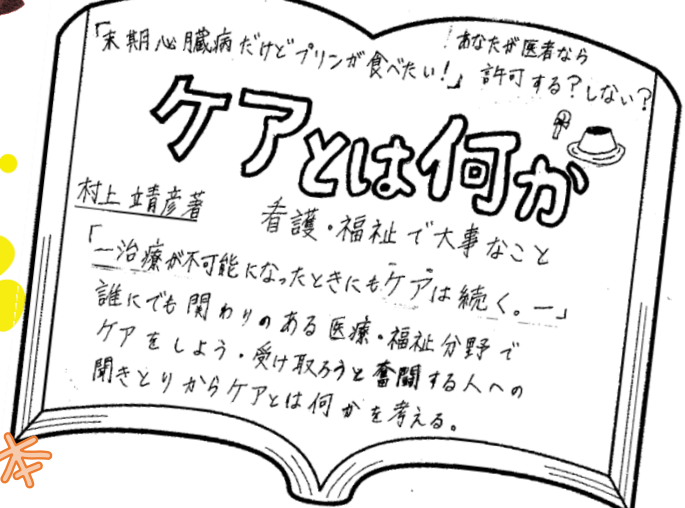 「末期心臓病だけどプリンが食べたい！」
あなたが医者なら
許可する？しない？
ケアとは何か
村上靖彦著
看護・福祉で大事なこと
「―治療が不可能になったときにもケアは続く。―」
誰にでも関わりのある医療・福祉分野で
ケアをしよう・受け取ろうと奮闘する人への
聞きとりからケアとは何かを考える。
本